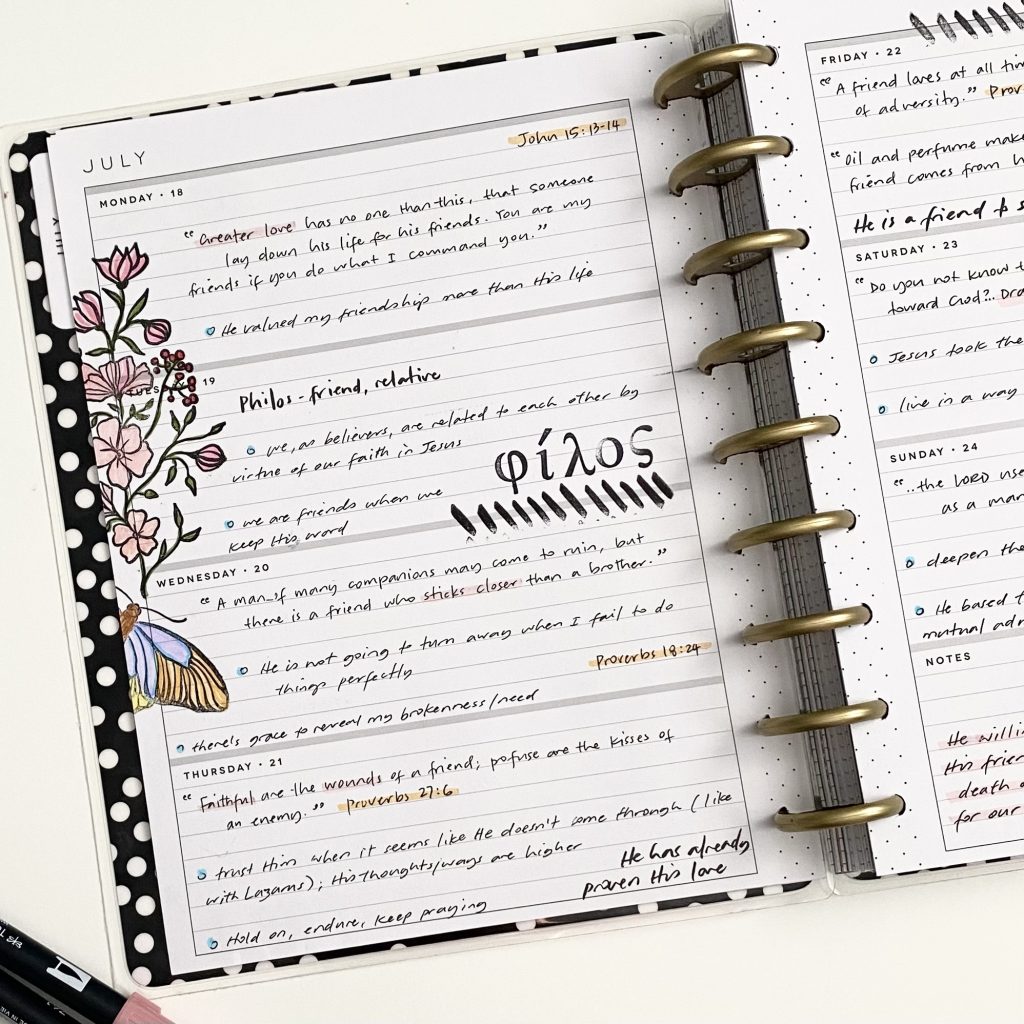 JULY
MONDAY · 18
John 15:13-14
“Greater love has no one than this, that someone
lay down his life for his friends. You are my
friends if you do what I command you.”
He valued my friendship more than His life
TUESDAY 19
Philos - friend, relative
we, as believers, are related to each other by
virtue of our faith in Jesus
φίλος
we are friends when we
keep His word
WEDNESDAY · 20
“A man of many companions may come to ruin, but
there is a friend who sticks closer than a brother.”
He is not going to turn away when I fail to do
things perfectly
Proverbs 18:24
there's grace to reveal my brokenness/need
THURSDAY · 21
“Faithful are the wounds of a friend; pofuse are the kisses of
an enemy.” Proverbs 27:6
trust Him when it seems like He doesn't come through (like
with Lazarus); His thoughts/ways are higher
He has already
proven His love
Hold on, endure, keep praying
FRIDAY · 22
“A friend loves at all
of adversity.”
“Oil and perfume
friend comes from
He is a friend to
SATURDAY · 23
“Do you not know
toward God?..
Jesus took the
live in a way
SUNDAY · 24
“..the LORD
as a
deepen the
He based
mutual
NOTES
He
His
death
for our